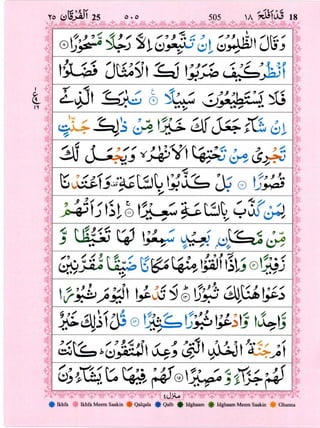 ١٨ قَدْ اَفْلَحَ 18 505 ٥٠٥ 25 اَلْفُرْقَان ٢٥
وَقَالَ الظّٰلِمُوْنَ اِنْ تَتَّبِعُوْنَ اِلَّا رَجُلًا مَّسْحُوْرًا ۝
اُنْظُرْ كَيْفَ ضَرَبُوْا لَكَ الْاَمْثَالَ فَضَلُّوْا
فَلَا يَسْتَطِيْعُوْنَ سَبِيْلًا ۝ تَبٰرَكَ الَّذِيْٓ
اِنْ شَآءَ جَعَلَ لَكَ خَيْرًا مِّنْ ذٰلِكَ جَنّٰتٍ
تَجْرِيْ مِنْ تَحْتِهَا الْاَنْهٰرُ وَيَجْعَلْ لَّكَ
قُصُوْرًا ۝ بَلْ كَذَّبُوْا بِالسَّاعَةِ وَاَعْتَدْنَا
لِمَنْ كَذَّبَ بِالسَّاعَةِ سَعِيْرًا ۝ اِذَا رَاَتْهُمْ
مِّنْ مَّكَانٍۭ بَعِيْدٍ سَمِعُوْا لَهَا تَغَيُّظًا وَّ
زَفِيْرًا ۝ وَاِذَآ اُلْقُوْا مِنْهَا مَكَانًا ضَيِّقًا مُّقَرَّنِيْنَ
دَعَوْا هُنَالِكَ ثُبُوْرًا ۝ لَا تَدْعُوا الْيَوْمَ ثُبُوْرًا
وَّاحِدًا وَّادْعُوْا ثُبُوْرًا كَثِيْرًا ۝ قُلْ اَذٰلِكَ خَيْرٌ
اَمْ جَنَّةُ الْخُلْدِ الَّتِيْ وُعِدَ الْمُتَّقُوْنَ كَانَتْ
لَهُمْ جَزَآءً وَّمَصِيْرًا ۝ لَهُمْ فِيْهَا مَا يَشَآءُوْنَ
منزل ٤
Ikhfa Ikhfa Meem Saakin Qalqala Qalb Idghaam Idghaam Meem Saakin Ghunna